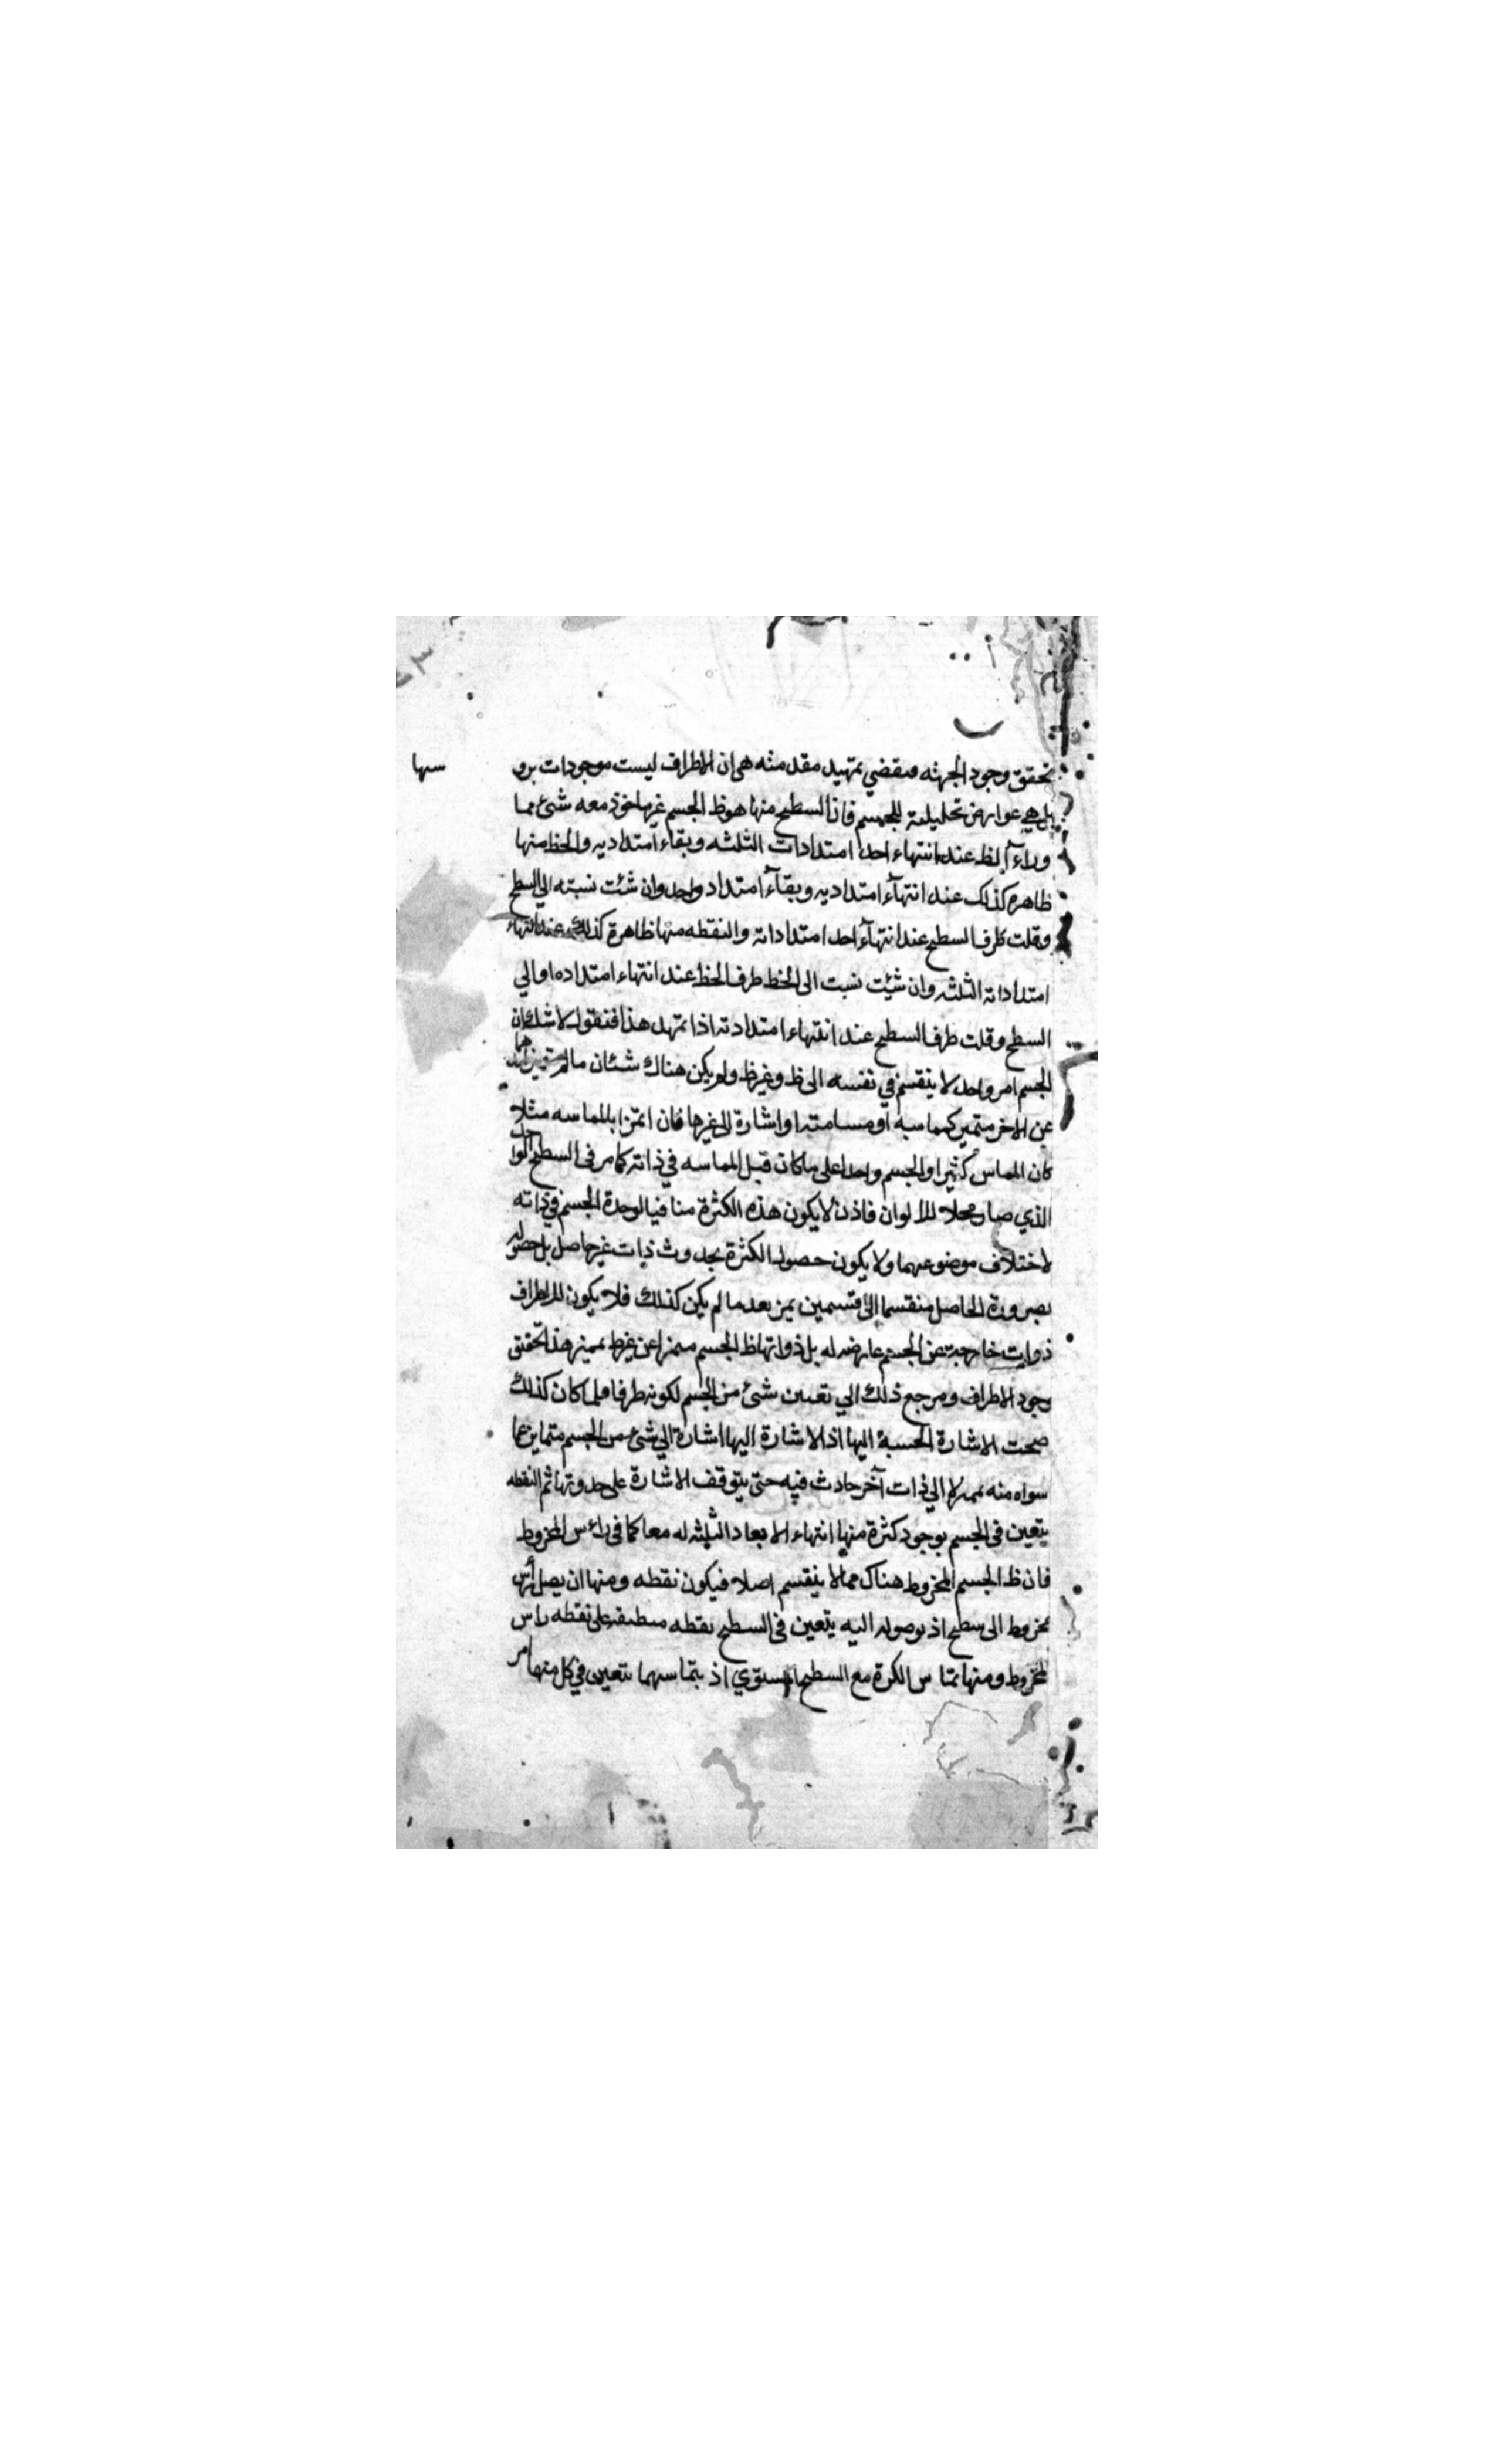 تحقق وجود الجهته مقضي بتمهيد مقدمته هي ان الاطراف ليست موجودات برو سها
بل هي عوارض تحليليته للجسم فان السطح منها هو ظ الجسم غير ماخوذ معه شئ مما
وراء الظ عند انتهاء احد امتدادات الثلثه وبقاء امتداديه والخط منها
ظاهره كذلك عند انتهآء امتداديه وبقآء امتداد واحد وان شئت نسبته الي السطح
وقلت طرف السطح عند انتهآء احد امتداداته والنقطه منها ظاهرة كذلك عند انتهاء
امتداداته الثلثه وان شئت نسبت الى الخط طرف الخط عند انتهاء امتداده او الي
السطح وقلت طرف السطح عند انتهاء امتدادته اذا تمهد هذا فنقول لا شك ان
الجسم امر واحد لا ينقسم في نفسه الى ظ وغير ظ ولم يكن هناك شئان مالم
عن الاخر متميز كمماسه او مسامته او اشارة الى غيرها فان امتزا بالمماسه مثلا
كان المماس كثيرا والجسم واحدا على ما كان قبل المماسه في ذاته كما مر في السطح الواحد
الذي صار محلا للالوان فاذن لا يكون هذه الكثرة منافيا لوحدة الجسم في ذاته
لاختلاف موضوعهما ولا يكون حصول الكثرة بحدوث ذات غير حاصل بل حصوله
بصرورة الحاصل منقسما الى قسمين بعد ما لم يكن كذلك فلا يكون للاطراف
ذوات خارجة عن الجسم عارضه له بل ذواتها ظ الجسم عن غير ظ هذا تحقق
وجود الاطراف ومرجع ذلك الي تعيين شئ من الجسم لكونه طرفا فلما كان كذلك
صحت الاشارة الحسية اليها اذ الاشارة اليها اشارة الي شئ من الجسم متمايز عما
سواه منه لا الي ذات آخر حادث فيه حتى يتوقف الاشارة على حدوثها ثم النقطه
يتعين في الجسم بوجود كثرة منها انتهاء الابعاد الثلثه له معا كما في رأس المخروط
فان ظ الجسم المخروط هناك مما لا ينقسم اصلا فيكون نقطه ومنها ان يصل رأس
مخروط الى سطح اذ بوصوله اليه يتعين في السطح نقطه منطبقه على نقطه راس
المخروط ومنها تماس الكرة مع السطح المستوي اذ بتماسهما يتعين في كل منها امر